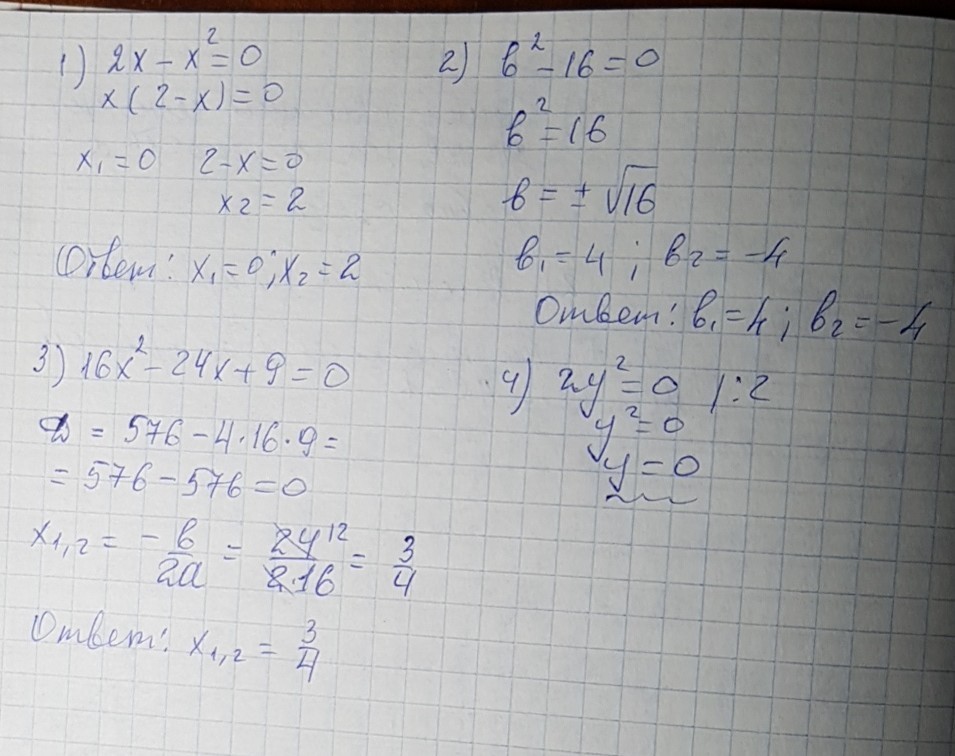 1) 2x - x² = 0
x(2-x) = 0
x₁ = 0 2-x=0
x₂ = 2
Ответ: x₁=0; x₂=2
2) в² - 16 = 0
в² = 16
в = ± √16
в₁ = 4 ; в₂ = -4
Ответ: в₁=4; в₂=-4
3) 16x² - 24x + 9 = 0
D = 576 - 4·16·9 =
= 576 - 576 = 0
x₁,₂ = -в/2a = 24 12/2·16 = 3/4
Ответ: x₁,₂ = 3/4
4) 2y² = 0 /:2
y² = 0
y = 0